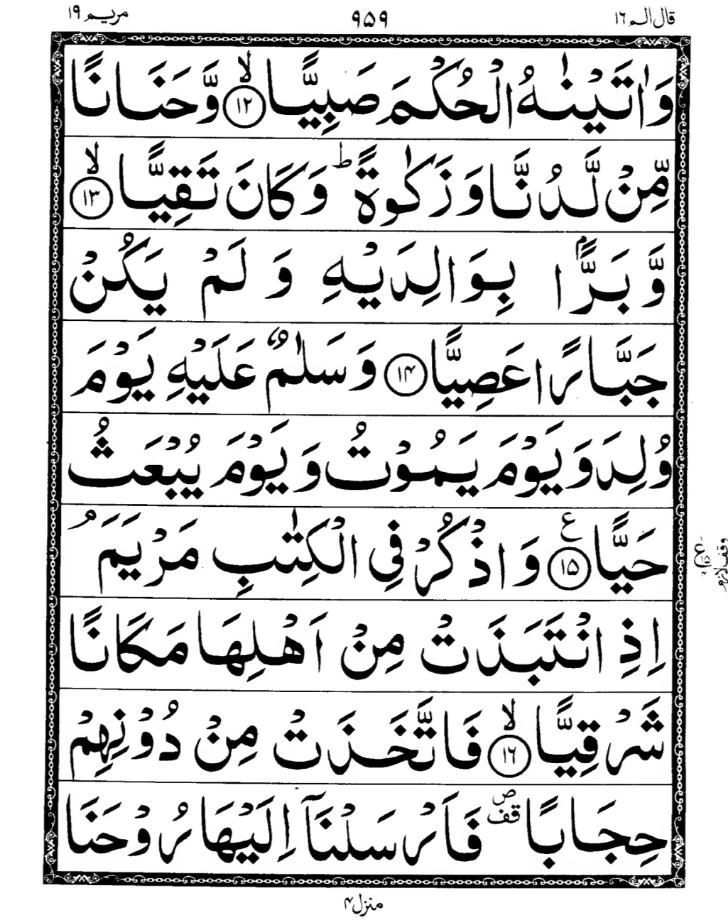 مریم ۱۹ ۹۵۹ قال الم ۱۶
وَاٰتَيْنٰهُ الْحُكْمَ صَبِيًّا ۙ‏﴿۱۲﴾ وَّحَنَانًا
مِّنْ لَّدُنَّا وَزَكٰوةً ؕ وَكَانَ تَقِيًّا ۙ‏﴿۱۳﴾
وَّبَرًّۢا بِوَالِدَيْهِ وَلَمْ يَكُنْ
جَبَّارًا عَصِيًّا ‏﴿۱۴﴾ وَسَلٰمٌ عَلَيْهِ يَوْمَ
وُلِدَ وَيَوْمَ يَمُوْتُ وَيَوْمَ يُبْعَثُ
حَيًّا ‏﴿۱۵﴾ ع وَاذْكُرْ فِى الْكِتٰبِ مَرْيَمَ ۘ
وقف لازم
اِذِ انْتَبَذَتْ مِنْ اَهْلِهَا مَكَانًا
شَرْقِيًّا ۙ‏﴿۱۶﴾ فَاتَّخَذَتْ مِنْ دُوْنِهِمْ
حِجَابًا ص قف فَاَرْسَلْنَاۤ اِلَيْهَا رُوْحَنَا
منزل ۴